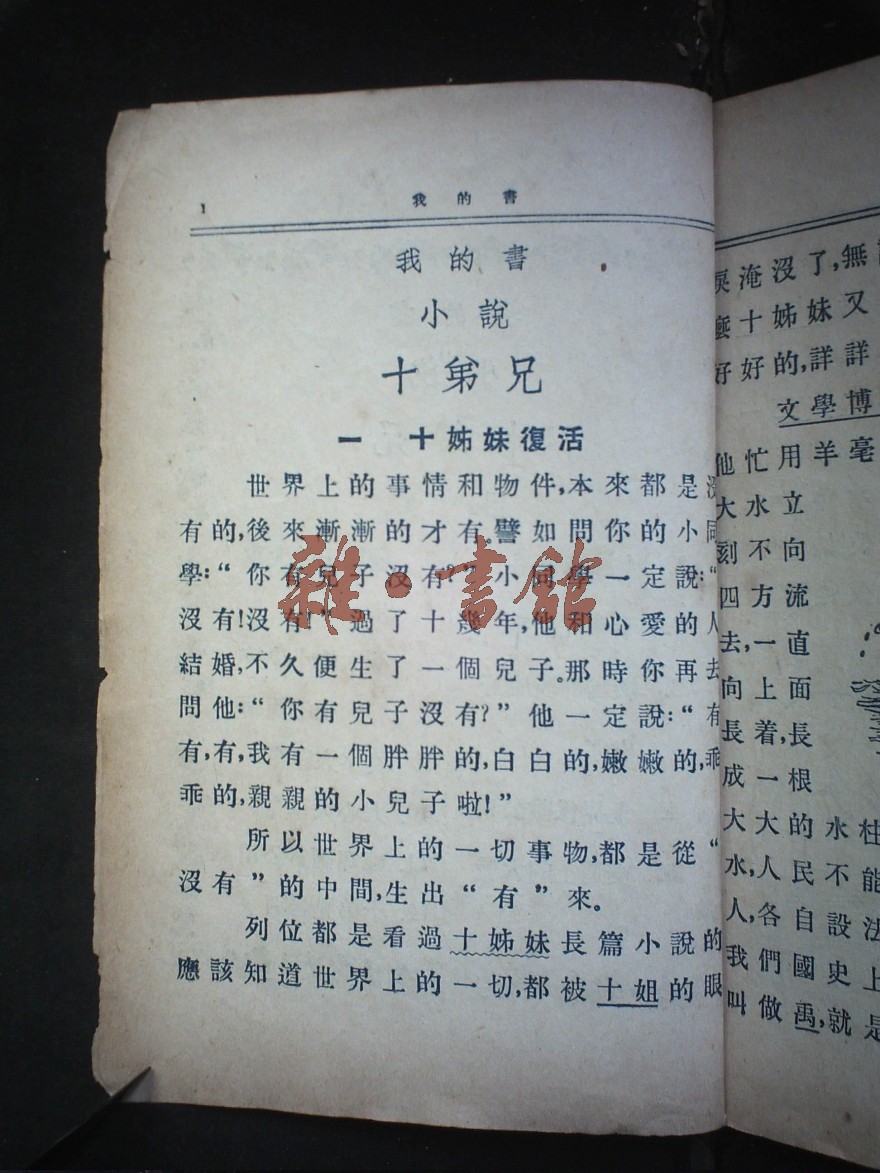 1 我的書
我的書
小說
十弟兄
一 十姊妹復活
世界上的事情和物件,本來都是沒
有的,後來漸漸的才有。譬如問你的小同
學:“你有兒子沒有?”小同學一定說:“
沒有!沒有!”過了十幾年,他和心愛的人
結婚,不久便生了一個兒子。那時你再去
問他:“你有兒子沒有?”他一定說:“有
有,有,我有一個胖胖的,白白的,嫩嫩的,乖
乖的,親親的小兒子啦!”
所以世界上的一切事物,都是從“
沒有”的中間,生出“有”來。
列位都是看過十姊妹長篇小說的
應該知道世界上的一切,都被十姐的眼
雜·書館
淚淹沒了,無
麼十姊妹又
好好的,詳詳
文學博
他忙用羊毫
大水立
刻不方向
四方流
去,一直
向上面
長着,長
成一根
大大的水柱
水,人民不能
人,各自設法
我們國史上
叫做禹,就是